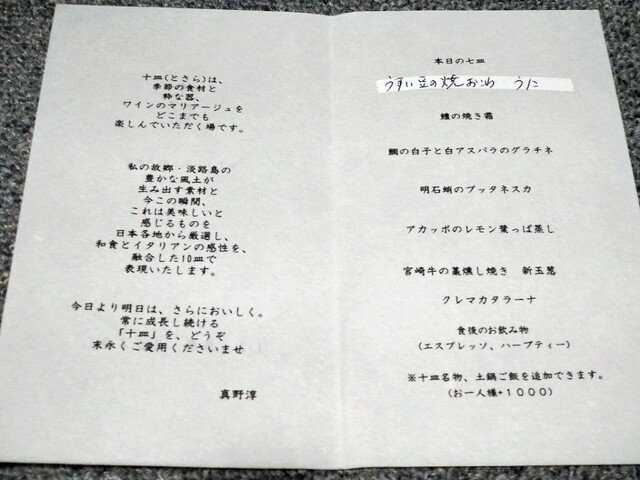 十皿(とさら)は、
季節の食材と
粋な器、
ワインのマリアージュを
どこまでも
楽しんでいただく場です。
私の故郷・淡路島の
豊かな風土が
生み出す素材と
今この瞬間、
これは美味しいと
感じるものを
日本各地から厳選し、
和食とイタリアンの感性を、
融合した10皿で
表現いたします。
今日より明日は、さらにおいしく。
常に成長し続ける
「十皿」を、どうぞ
末永くご愛用くださいませ
真野淳
本日の七皿
うすい豆の焼おこわ うに
鱧の焼き霜
鯛の白子と白アスパラのグラチネ
明石蛸のプッタネスカ
アカッポのレモン葉っぱ蒸し
宮崎牛の藁燻し焼き 新玉葱
クレマカタラーナ
食後のお飲み物
(エスプレッソ、ハーブティー)
※十皿名物、土鍋ご飯を追加できます。
(お一人様+1000)